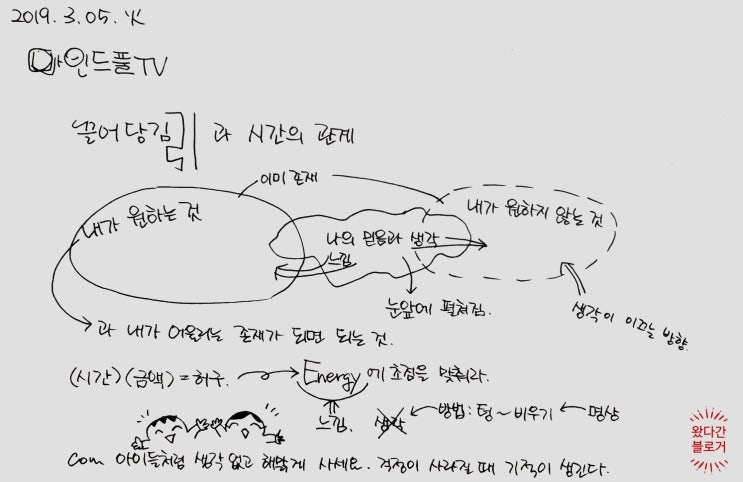 2019. 3. 05. 火
마인드풀TV
끌어당김
과 시간의 관계
이미 존재
내가 원하는 것
내가 원하지 않는 것
나의 믿음과 생각
느낌
눈앞에 펼쳐짐.
생각이 이끄는 방향.
과 내가 어울리는 존재가 되면 되는 것.
(시간)(금액) = 허구.
Energy에 초점을 맞춰라.
느낌.
생각
방법: 텅~비우기
명상
com 아이들처럼 생각 없고 해맑게 사세요. 걱정이 사라질 때 기적이 생긴다.
왔다간
블로거